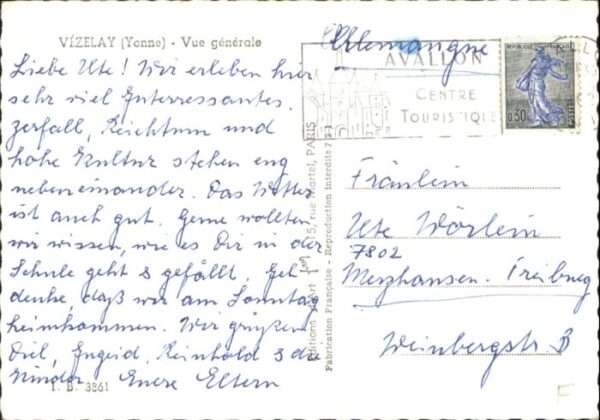 VÉZELAY (Yonne) - Vue générale
Liebe Ute! Wir erleben hier
sehr viel Interressantes.
Zerfall, Reichtum und
hohe Kultur stehen eng
nebeneinander. Das Wetter
ist auch gut. Gerne wollten
wir wissen, wie es Dir in der
Schule geht & gefällt. Ich
denke, daß wir am Sonntag
heimkommen. Wir grüßen
Dich, Ingrid, Reinhold & die
Kinder Eure Eltern
I. B. 3861
Éditions d'Art 15, rue Martel, PARIS
Fabrication Française - Reproduction interdite
Allemangne
AVALLON
CENTRE
TOURISTIQUE
0,30
Fräulein
Ute Wörlein
7802
Merzhausen. Freiburg
Weinbergstr. 3